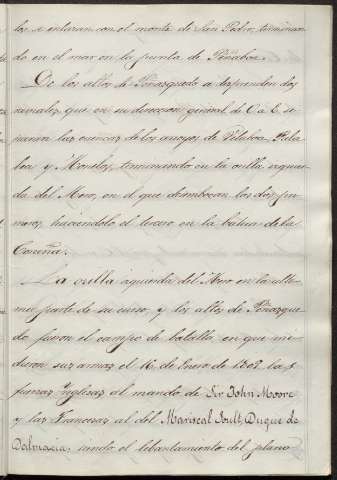 los se enlazan con el monte de San Pedro, terminan
do en el mar en la punta de Peñaboa.
De los altos de Peñasquedo se desprenden dos
ramales, que en su direccion general de O. a E. se
paran las cuencas de los arroyos de Vilaboa, Pala
bea y Monelos, terminando en la orilla izquier
da del Mero, en el que desembocan los dos pri
meros, haciendolo el tercero en la bahia de la
Coruña.
La orilla izquierda del Mero en la ulti
ma parte de su curso, y los altos de Peñasque
do fueron el campo de batalla en que mi
dieron sus armas el 16 de Enero de 1809 las
fuerzas Ynglesas al mando de Sir John Moore
y las Francesas al del Mariscal Soult, Duque de
Dalmacia, siendo el lebantamiento del plano